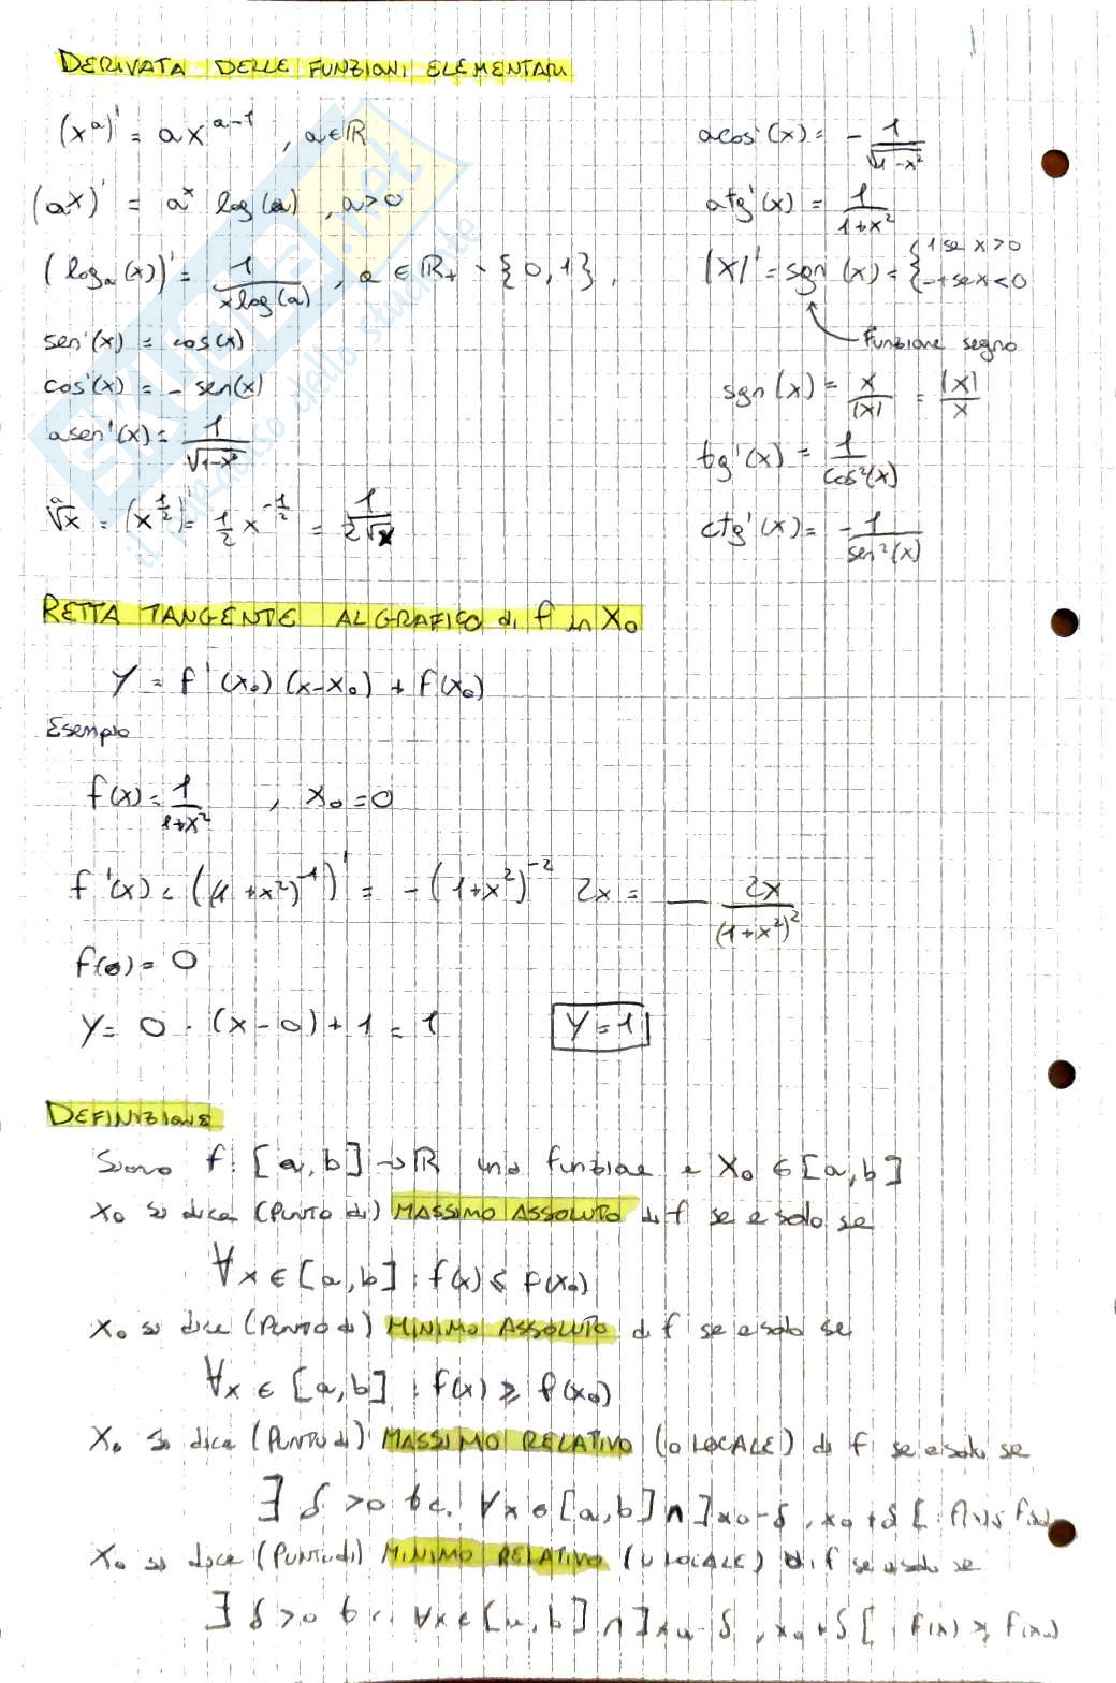 DERIVATA DELLE FUNZIONI ELEMENTARI
(x^a)' = a x^{a-1} , a ∈ ℝ
(a^x)' = a^x log(a) , a>0
(log_a(x))' = 1/(x log(a)) , a ∈ ℝ+ \ {0,1}.
sen'(x) = cos(x)
cos'(x) = - sen(x)
asen'(x) = 1/√(1-x²)
ᵃ√x = (x^{1/2})' = 1/2 x^{-1/2} = 1/(2√x)
acos'(x) = - 1/√(1-x²)
atg'(x) = 1/(1+x²)
|x|' = sgn (x) = { 1 se x>0
-1 se x<0
Funzione segno
sgn(x) = x/|x| = |x|/x
tg'(x) = 1/cos²(x)
ctg'(x) = -1/sen²(x)
RETTA TANGENTE AL GRAFICO di f in x₀
Y = f'(x₀)(x-x₀) + f(x₀)
Esempio
f(x) = 1/(1+x²) , x₀ = 0
f'(x) = ((1+x²)^{-1})' = -(1+x²)^{-2} 2x = - 2x/(1+x²)²
f(0) = 0
Y = 0 · (x-0) + 1 = 1 Y = 1
DEFINIZIONE
Siano f: [a,b] → ℝ una funzione e x₀ ∈ [a,b]
x₀ si dice (PUNTO di) MASSIMO ASSOLUTO di f se e solo se
∀x ∈ [a,b] : f(x) ≤ f(x₀)
x₀ si dice (PUNTO di) MINIMO ASSOLUTO di f se e solo se
∀x ∈ [a,b] : f(x) ≥ f(x₀)
x₀ si dice (PUNTO di) MASSIMO RELATIVO (o LOCALE) di f se e solo se
∃ δ>0 t.c. ∀x ∈ [a,b] ∩ ]x₀-δ, x₀+δ[ : f(x) ≤ f(x₀)
x₀ si dice (PUNTO di) MINIMO RELATIVO (o LOCALE) di f se e solo se
∃ δ>0 t.c. ∀x ∈ [a,b] ∩ ]x₀-δ, x₀+δ[ : f(x) ≥ f(x₀)
SKUOLA.net